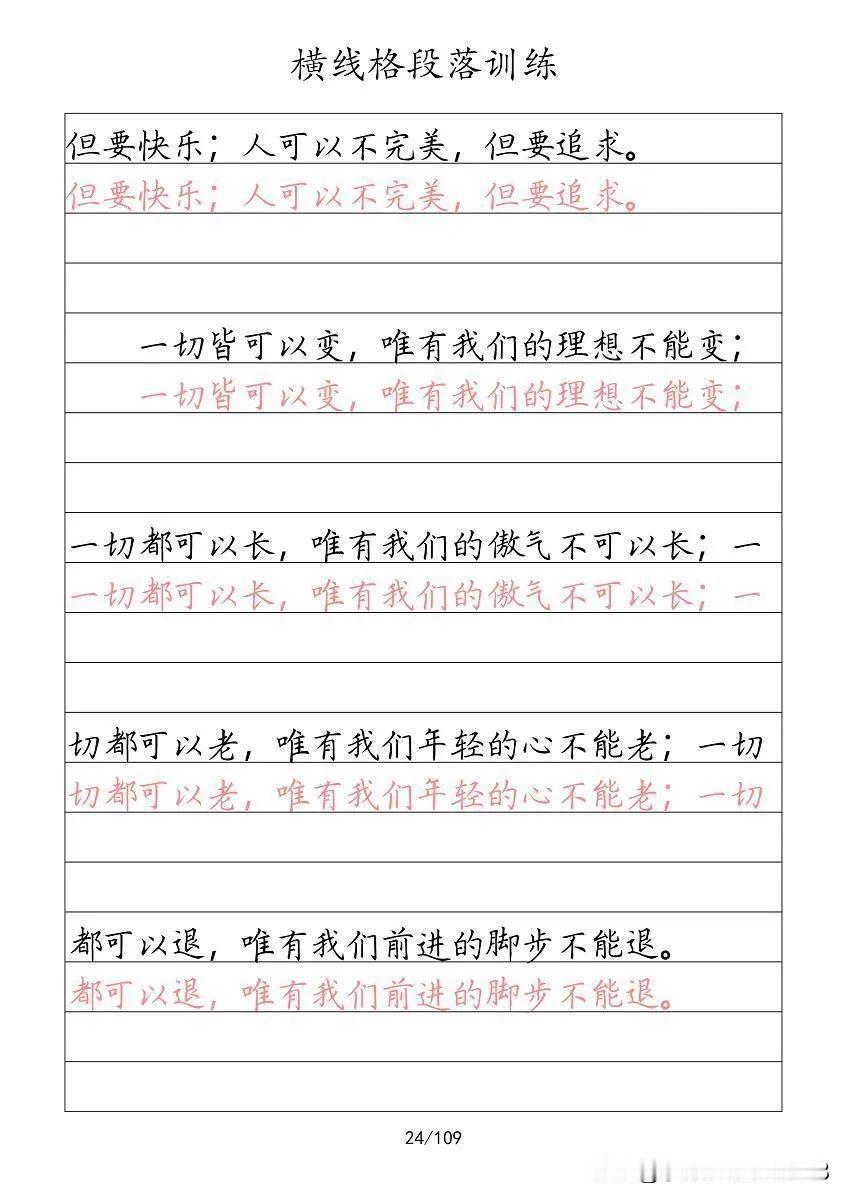 横线格段落训练
但要快乐；人可以不完美，但要追求。
但要快乐；人可以不完美，但要追求。
一切皆可以变，唯有我们的理想不能变；
一切皆可以变，唯有我们的理想不能变；
一切都可以长，唯有我们的傲气不可以长；一
一切都可以长，唯有我们的傲气不可以长；一
切都可以老，唯有我们年轻的心不能老；一切
切都可以老，唯有我们年轻的心不能老；一切
都可以退，唯有我们前进的脚步不能退。
都可以退，唯有我们前进的脚步不能退。
24/109